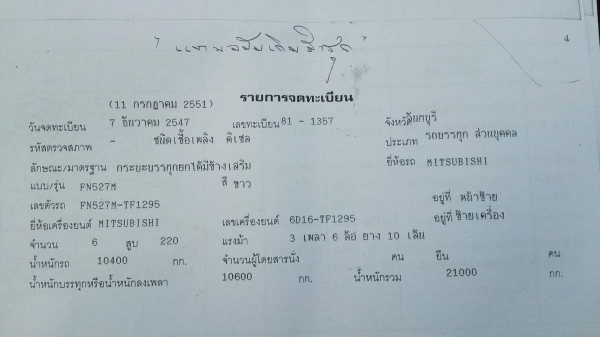 4
รายการจดทะเบียน
(11 กรกฎาคม 2551)
วันจดทะเบียน 7 ธันวาคม 2547 เลขทะเบียน 81 - 1357 จังหวัด
รหัสตรวจสภาพ - ชนิดเชื้อเพลิง ดีเซล ประเภท รถบรรทุก ส่วนบุคคล
ลักษณะ/มาตรฐาน กระบะบรรทุกยกได้มีข้างเสริม ยี่ห้อรถ MITSUBISHI
แบบ/รุ่น FN527M สี ขาว
เลขตัวรถ FN527M-TF1295 อยู่ที่ หน้าซ้าย
ยี่ห้อเครื่องยนต์ MITSUBISHI เลขเครื่องยนต์ 6D16-TF1295 อยู่ที่ ซ้ายเครื่อง
จำนวน 6 สูบ 220 แรงม้า 3 เพลา 6 ล้อ ยาง 10 เส้น
น้ำหนักรถ 10400 กก. จำนวนผู้โดยสารนั่ง คน ยืน คน
น้ำหนักบรรทุกหรือน้ำหนักลงเพลา 10600 กก. น้ำหนักรวม 21000 กก.